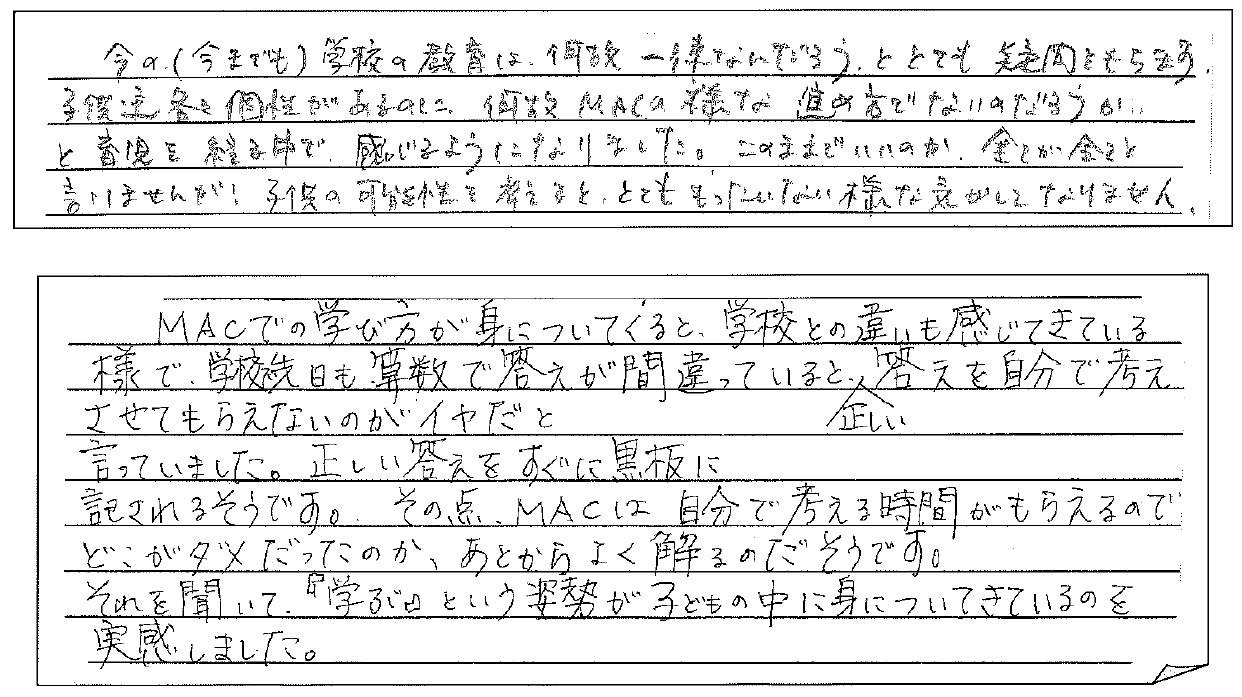 今の(今までも)学校の教育は、何故一律なんだろう、ととても疑問ともちます。
子供達各々個性があるのに、何故MACの様な進め方でないのだろうか…
と育児を経る中で、感じるようになりました。このままでいいのか、全てが全てと
言いませんが!子供の可能性を考えると、とてももったいない様な気がしてなりません。
MACでの学び方が身についてくると、学校との違いも感じてきている
様で、学校先日も算数で答えが間違っていると、答えを自分で考え
させてもらえないのがイヤだと 正しい
言っていました。正しい答えをすぐに黒板に
記されるそうです。その点、MACは自分で考える時間がもらえるので
どこがダメだったのか、あとからよく解るのだそうです。
それを聞いて、『学ぶ』という姿勢が子どもの中に身についてきているのを
実感しました。